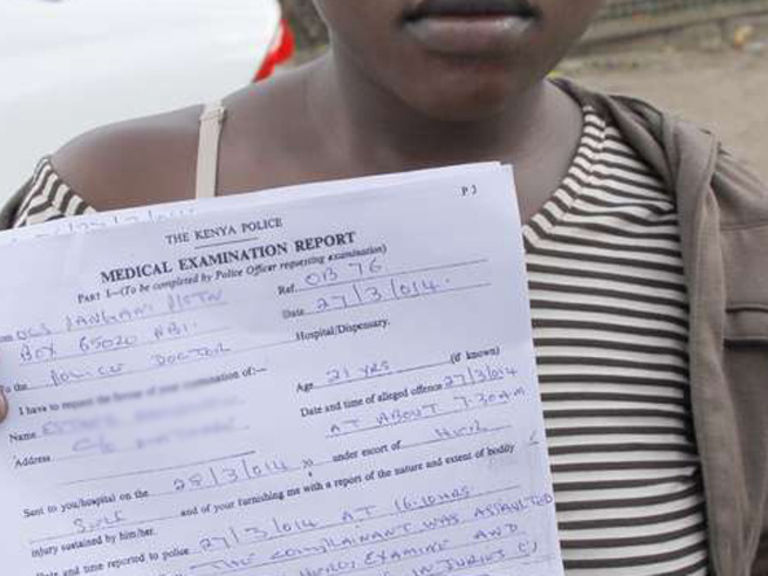 P3
THE KENYA POLICE
MEDICAL EXAMINATION REPORT
PART I—(To be completed by Police Officer requesting examination)
Ref. OB 76
OCS PANGANI
Date 27/3/014.
BOX 65020 NBI.
Hospital/Dispensary.
To the POLICE DOCTOR
I have to request the favour of your examination of:—
Age 21 YRS (if known)
Name
Date and time of alleged offence 27/3/014
Address
AT ABOUT 7.30AM
under escort of
Sent to you/hospital on the 28/3/014
and of your furnishing me with a report of the nature and extent of bodily
injury sustained by him/her.
Date and time reported to police 27/3/014 AT 16.10HRS
THE COMPLAINANT WAS ASSAULTED
EXAMINE AND